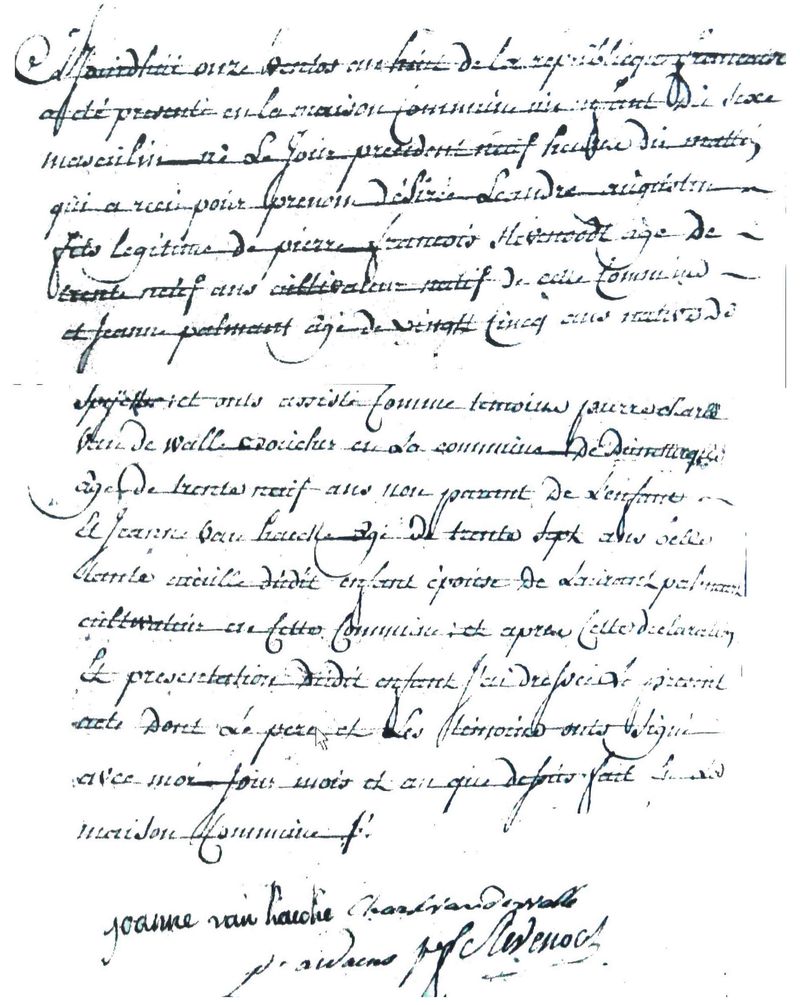 aujourdhui onze ventos an huit de la republique francaise
a été presenté en la maison Commune un enfant Du Sexe
masculin né Le Jour precedent neuf heures du mattin
qui a recu pour prenom désiré Leandre augustin
fils legitime de pierre francois Stevenoodt âgé De
trente neuf ans cultivateur natif de cette Commune
et Jeanne palmant âgé de vingtt Cincq ans native de
et onts assisté Comme temoins pierre charle
Van de Walle en La commune De
âgé de trente neuf ans non parant De L'enfant
Et Jeanne Van haecke agé de trente Sept ans belle
tante dudit enfant épouse De Laurant palmant
cultivateur en Cette Commune et apres Cette declaration
Et presentation Dudit enfant J'ai dressé Le present
acte Dont Le pere et Les temoins onts Signé
avec moi Jour mois et an que dessus fait
maison Commune
joanne van haecke Charl vandewalle
Stevenoot